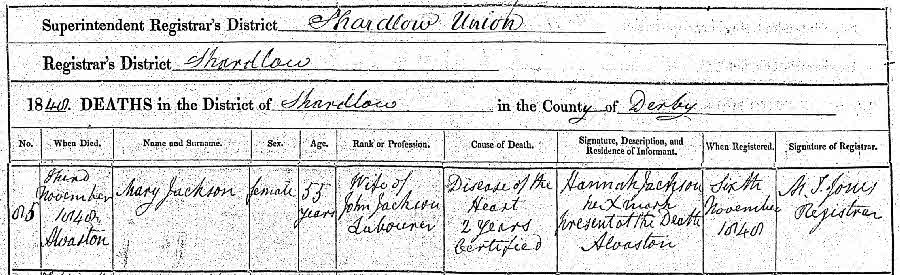 Superintendent Registrar's District Shardlow Union
Registrar's District Shardlow
1848. DEATHS in the District of Shardlow in the County of Derby
No. When Died. Name and Surname. Sex. Age. Rank or Profession. Cause of Death. Signature, Description, and Residence of Informant. When Registered. Signature of Registrar.
85
Third
November
1848
Alvaston
Mary Jackson
female
55
years
Wife of
John Jackson
Labourer
Disease of the
Heart
2 Years
Certified
Hannah Jackson
her X mark
Present at the Death
Alvaston
Sixth
November
1848
Registrar